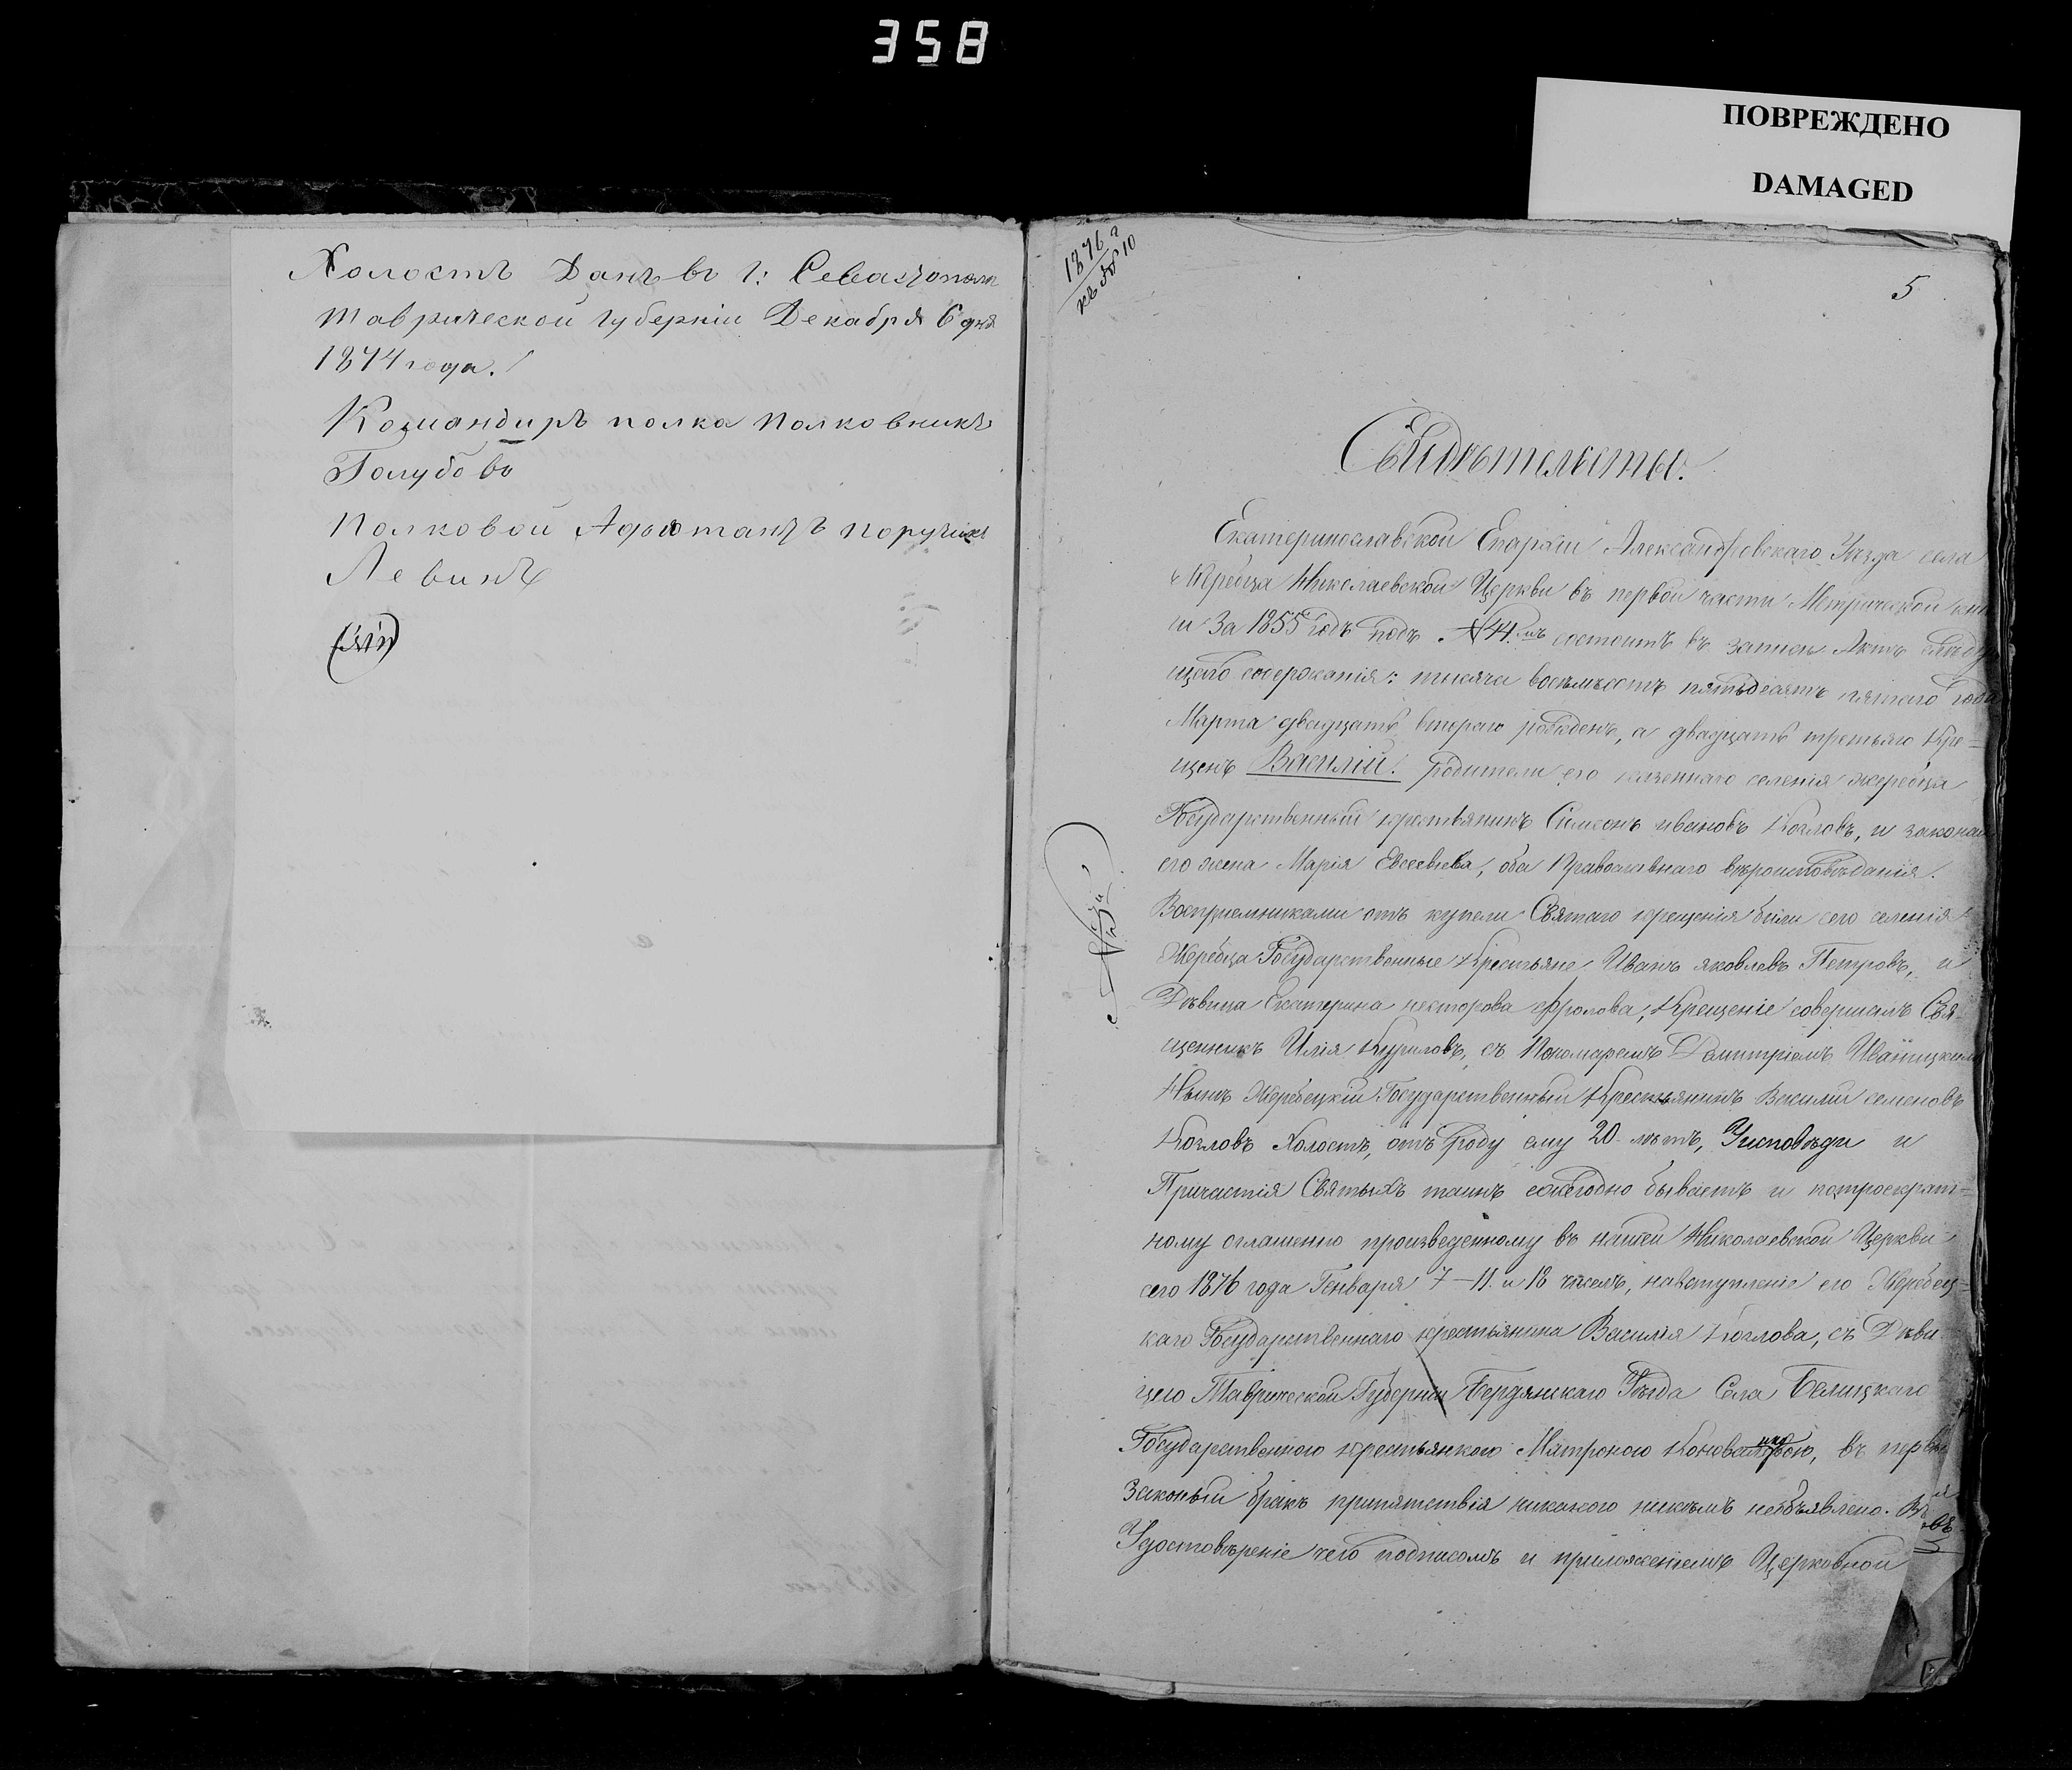 358
ПОВРЕЖДЕНО
DAMAGED
Холостъ Данъ въ г: Севастополѣ
Таврической губерніи Декабря 6 дня
1874 года.
Командиръ полка Полковникъ
Голубовъ
Полковой Адютантъ поручикъ
Левинъ
1876 г
къ № 10
5
Свидѣтельство.
Екатеринославской Епархіи Александровскаго Уѣзда села
Жеребца Николаевской Церкви въ первой части Метрической кни
ги За 1855 годъ подъ № 44.мъ состоитъ въ записи Актъ слѣду
щего содержанія: тысяча восемьсотъ пятьдесятъ пятаго года
Марта двадцать втораго рожденъ, а двадцать третьяго Кре=
щенъ Василій. Родители его казеннаго селенія жеребца
Государственный крестьянинъ Симеонъ ивановъ Козловъ, и законая
его жена Марія Евсевіева, оба Православнаго вѣроисповѣданія.
Воспріемниками отъ купели Святаго крещенія были сего селенія
Жеребца Государственные Крестьяне Иванъ яковлевъ Петровъ, и
Дѣвица Екатерина несторова Фролова; Крещеніе совершалъ Свя=
щенникъ Илія Куриловъ, съ Пономаремъ Димитріемъ Иваницкимъ
Нынѣ Жеребецкій Государственный Крестьянинъ Василій семеновъ
Козловъ Холостъ, отъ Роду ему 20 лѣтъ, Уисповѣди и
Причастія Святыхъ таинъ ежегодно бываетъ и потроекрат=
ному оглашенію произведенному въ нашей Николаевской Церкви
сего 1876 года Генваря 7 - 11. и 18 чиселъ, навступленіе его Жеребец=
каго Государственнаго крестьянина Василія Козлова, съ Дѣви
цею Таврической Губерніи Бердянскаго Уѣзда Села Белицкаго
Государственною крестьянкою Матроною Коноваловою, въ первый
законый бракъ припятствія никакого никѣмъ необъявлено. Въ
Удостовѣреніе чего подписомъ и приложеніемъ Церковной